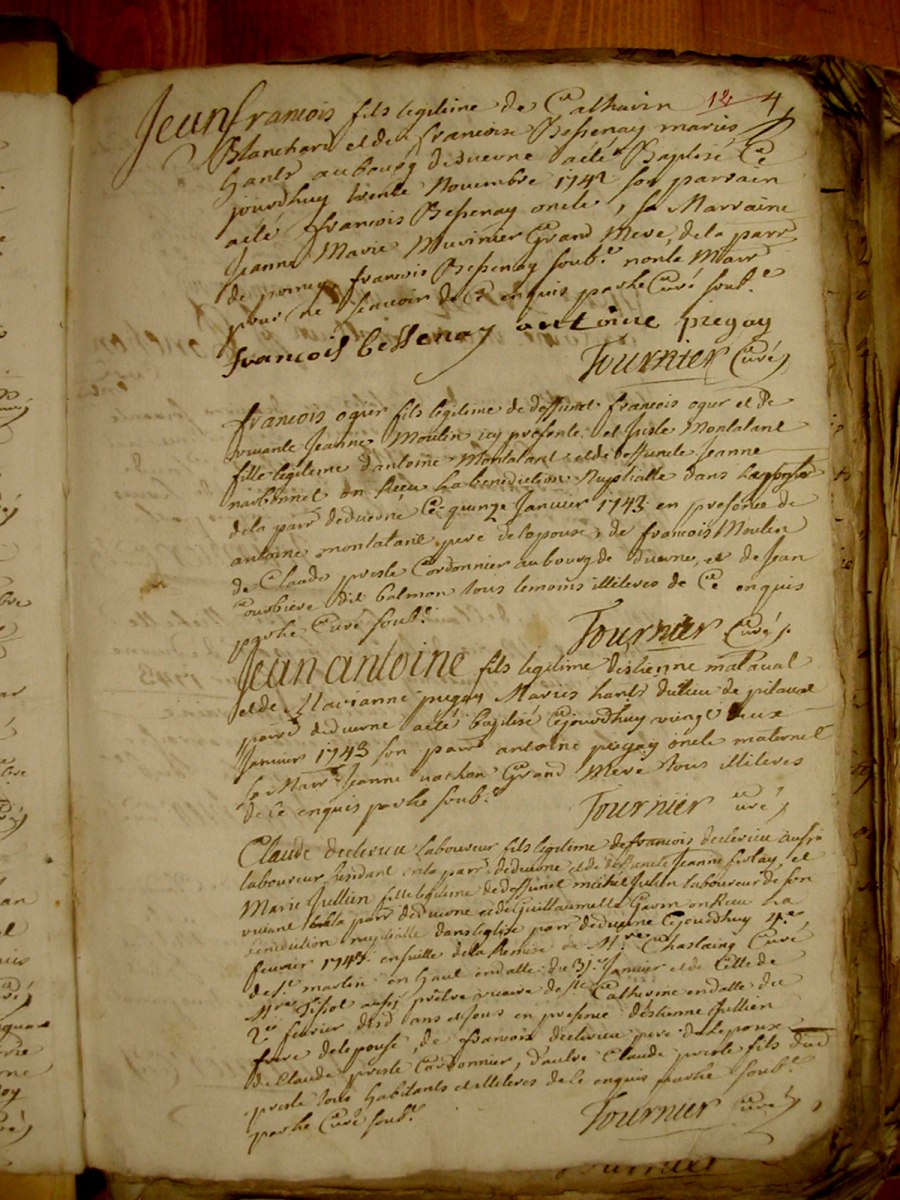 12 4
Jean francois fils legitime de Catharin
Blanchard et de francoise Bessenay maries
hants au bourg de duerne a été Baptisé Ce
jourdhuy trente Novembre 1742 son parrain
a été francois Bessenay oncle, sa Marraine
Jeanne Marie Muvinier Grand Mere, de la parr
de pomey francois Bessenay soub.e non la Marr
pour ne scavoir de Ce enquis par he Curé soub.é
francois bessenay antoine pugay
Fournier Curé
francois ogier fils legitime de deffunct francois ogier et de
vivante Jeanne Moulin icy presente et Juste Montatant
fille legitime d'antoine Montatant et de deffuncte Jeanne
narbonnet on Reçu La benediction Nuptialle dans
de la parr de duerne Ce quinze Janvier 1743 en presence de
antoine montatant pere de lepouse, de francois Moulin
de Claude preste Cordonnier au bourg de duerne, et de Jean
Courbiere dit balmon tous temoins illiteres de Ce enquis
par he Curé soub.é
Fournier Curé
Jean antoine fils legitime destienne mataval
et de Marianne pugay Maries hants du lieu de pitaval
parr de duerne a été baptisé Cejourdhuy vingt deux
Janvier 1743 son parr antoine pugay oncle maternel
la Marr Jeanne vachon Grand Mere tous illiteres
de Ce enquis par he soub.é
Fournier curé
Claude declerieu Laboureur fils legitime de francois declerieu aussi
laboureur residant en la parr de duerne et de deffuncte Jeanne, et
Marie Jullien fille legitime de deffunct michel Julien laboureur de son
vivant en la parr de duerne et de Guillaumette on Recu La
benediction nuptialle dans leglise parr de duerne Cejourdhuy 4.e
fevrier 1743 en suitte de la Remise de M.re Chaslaing Curé
de S.t martin en haut en datte du 31.e Janvier et de Celle de
M.re aussi prêtre vicaire de Ste Catherine en datte du
2.e fevrier dud ans et sous en presence destienne Jullien
frere de lepouse, de francois declerieu pere de lepoux
de Claude preste Cordonnier, d'autre Claude preste fils dud
preste tous habitants et illiteres de Ce enquis par he soub.é
par he Curé soub.é
Fournier Curé